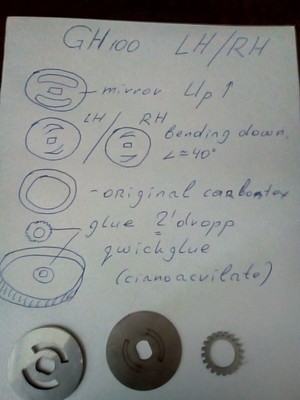 GH100 LH/RH
mirror Up ↑
LH / RH
bending down
∠=40°
- original carbontex
glue 2' dropp
qwickglue
(cianoacvilate)